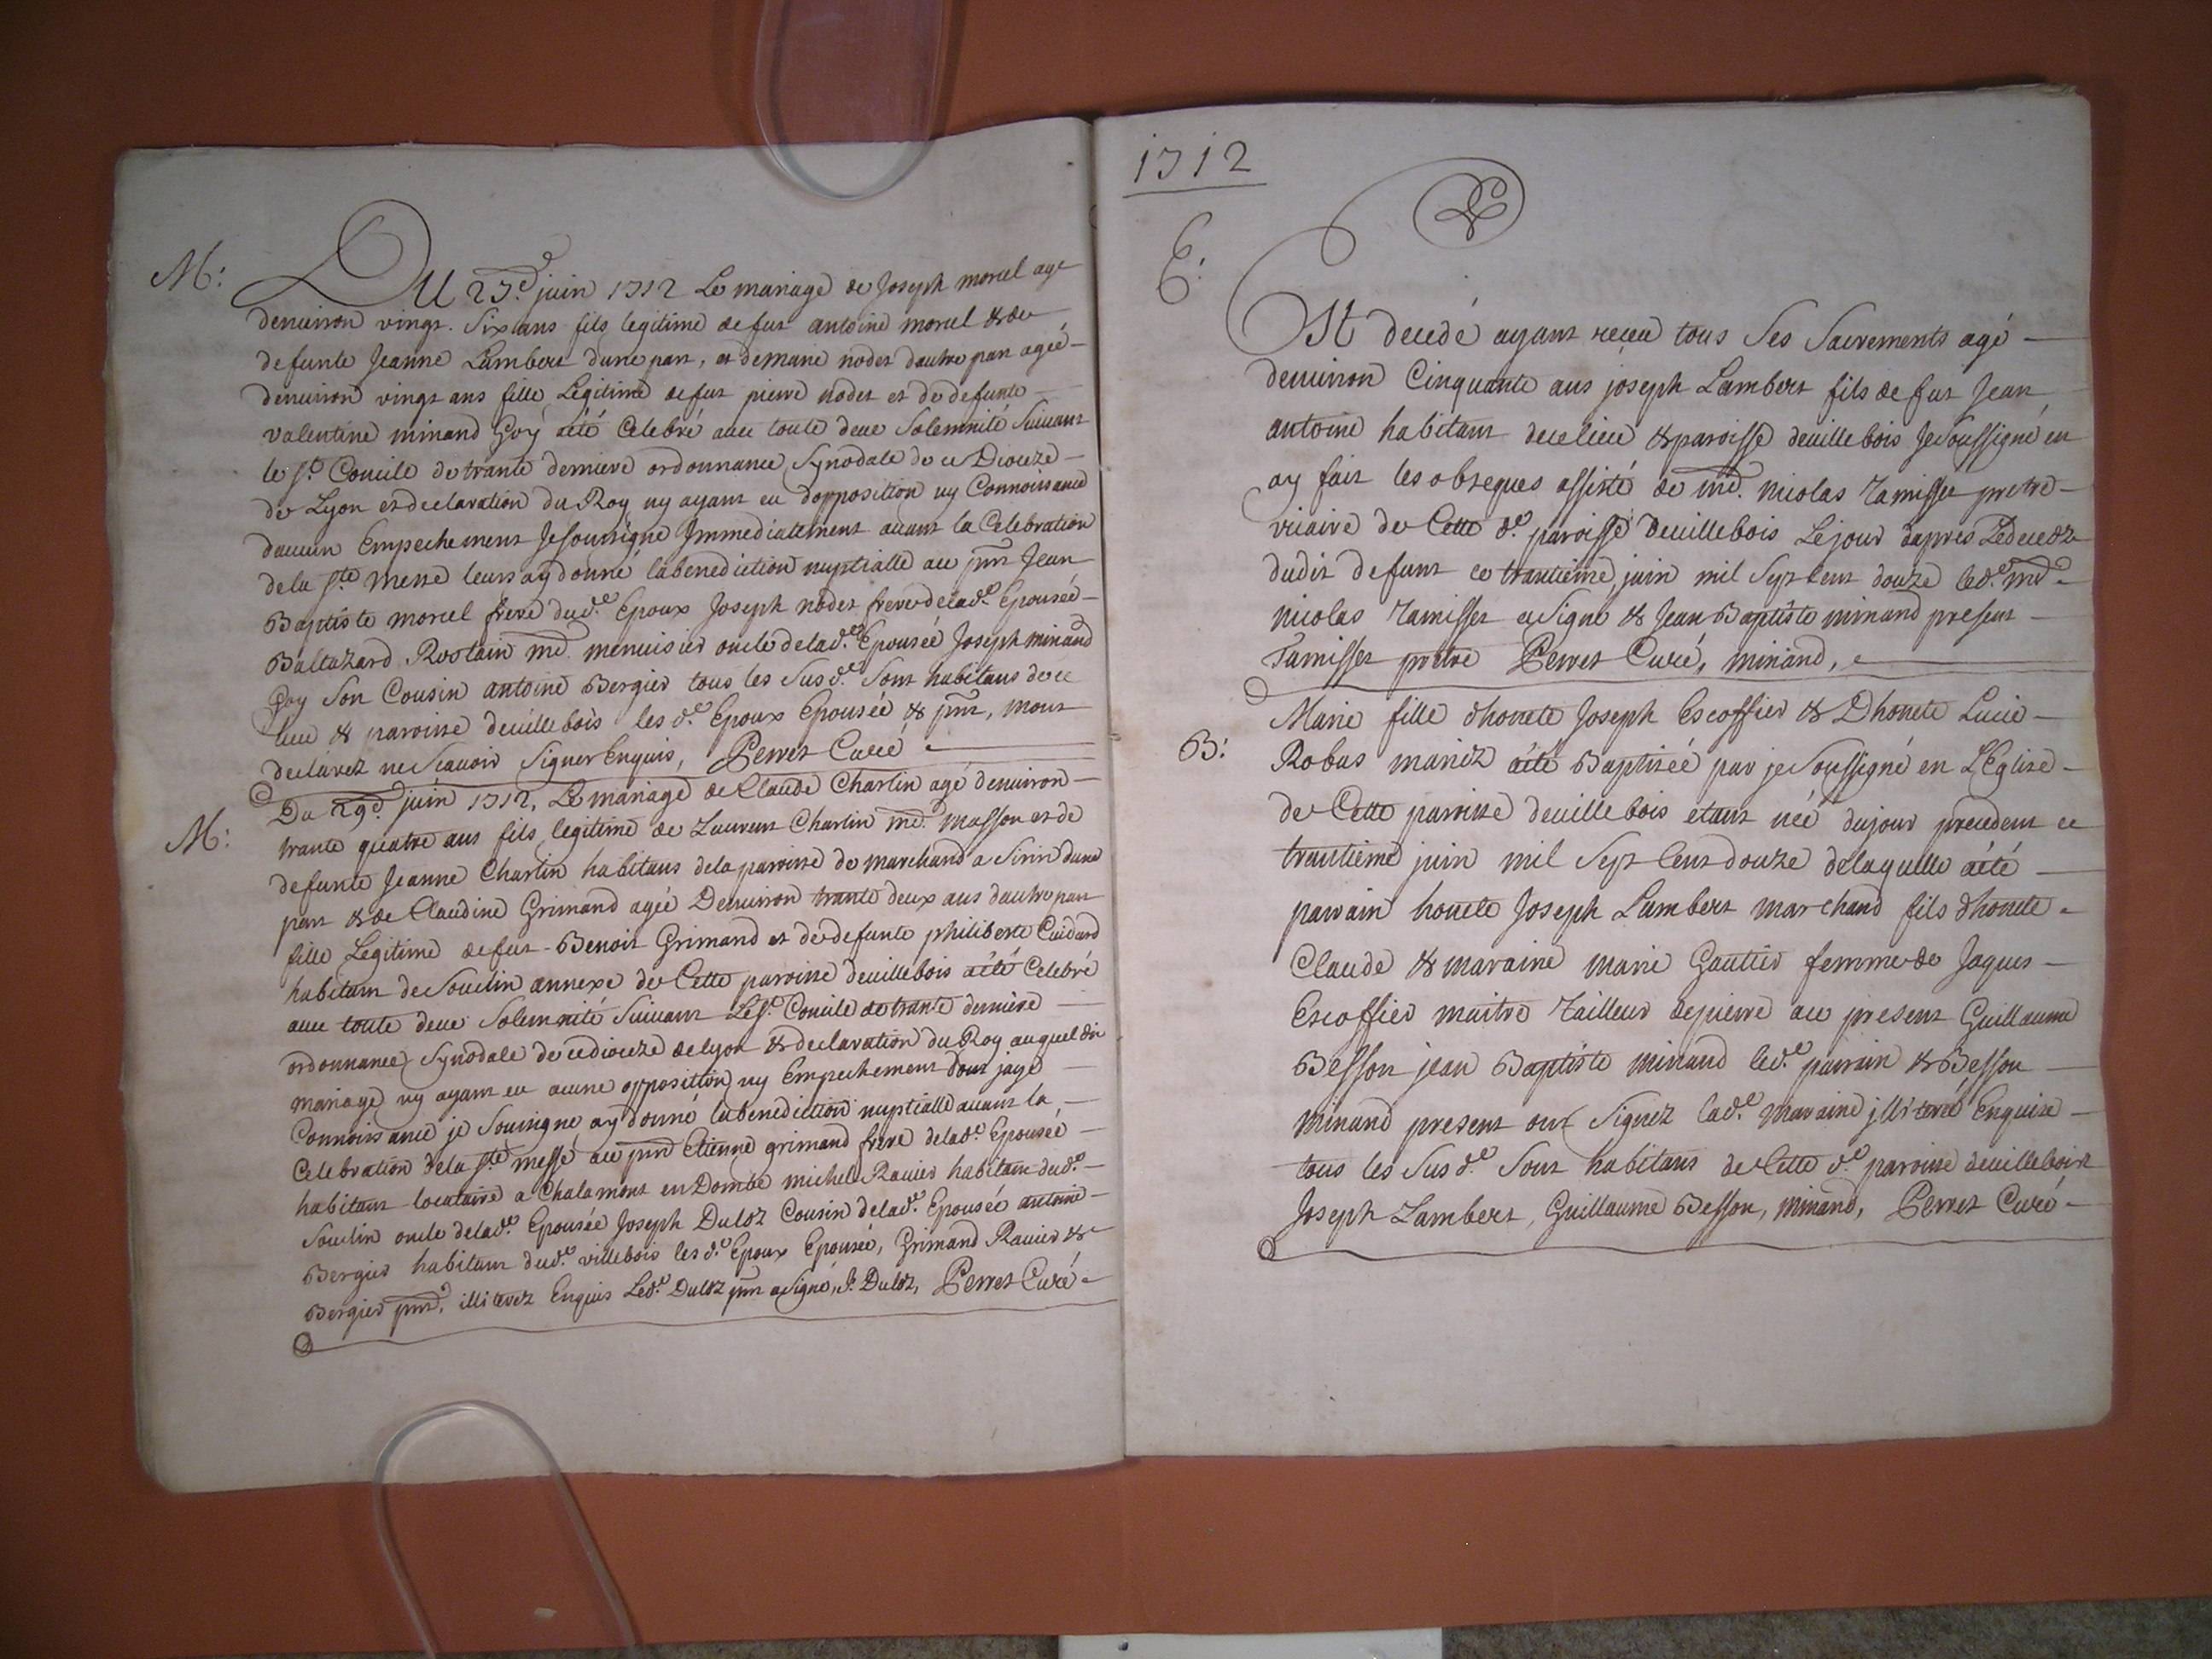 M:
Du 27.e juin 1712 Le mariage de Joseph morel agé
denuiron vingt. Six ans fils legitime de fut antoine morel & de
defunte Jeanne Lambert dune part, et de marie nodet dautre part ageé
denuiron vingt ans fille Legitime de fut pierre nodet et de defunte
valentine minand Goÿ aété Celebré auec toute deue Solemnité Suiuant
le S.t Concile de trante derniere ordonnance Synodale de ce Dioceze
de Lyon et declaration du Roy ny ayant eu dopposition ny Connoissance
daucun Empechement Je soussigne Jmmediatement auant la Celebration
de la S.te Messe leurs ay donné la benediction nuptialle au pnt Jean
Baptiste morel frere dud.e Epoux Joseph nodet frere de lad.e Epouseé
Baltazard Rostain md. menuisier oncle de lad.e Epouseé Joseph minand
Goy Son Cousin antoine Bergier tous les Susd.e Sont habitans de ce
lieu & paroisse deuillebois les d.e Epoux Epouseé & pnt, mont
declarez ne Scauoir Signer Enquis, Perret Curé
M:
Du 29.e juin 1712, Le mariage de Claude Charlin agé denuiron
trante quatre ans fils legitime de Laurent Charlin md. masson et de
defunte Jeanne Charlin habitans de la paroisse de marchand a Sirin dune
part & de Claudine Grimand ageé Denuiron trante deux ans dautre part
fille Legitime de fut Benoit Grimand et de defunte philiberte Cuidard
habitans de Souclin annexe de Cette paroisse deuillebois aété Celebré
auec toute deue Solemnité Suiuant Le S.t Concile de trante derniere
ordonnance Synodale de ce dioceze de lyon & declaration du Roy auquel dit
mariage ny ayant eu aucune opposition ny Empechement dont jaye
Connoissance je Soussigne ay donné la benediction nuptialle auant la
Celebration de la S.te messe au pnt Etienne grimand frere de lad.e Epouseé
habitant locataire a Chalamont en Dombe michel Rauier habitant dud.e
Souclin oncle de lad.e Epouseé Joseph Duloz Cousin de lad.e Epouseé antoine
Bergier habitant dud.e villebois les d.e Epoux Epouseé, Grimand Rauier &
Bergier pnt. illiterez Enquis Led.e Duloz pnt a Signé, J. Duloz, Perret Curé
1712
E:
Est decedé ayant receu tous Ses Sacrements agé
denuiron Cinquante ans joseph Lambert fils de fut Jean
antoine habitant de ce lieu & paroisse deuillebois Je Soussigné en
ay fait les obseques assisté de md. nicolas Tamisset pretre
vicaire de Cette d.e paroisse deuillebois Le jour dapres Le decedz
dudit defunt ce trantieme juin mil Sept Cent douze led.e md
nicolas Tamisset a Signé & Jean Baptiste minand present
Tamisset pretre Perret Curé, minand,
B:
Marie fille dhonete Joseph Escoffier & Dhonete Lucie
Robas mariéz aété Baptizeé par je Soussigné en L'Eglise
de Cette paroisse deuillebois etant néé dujour precedent ce
trantieme juin mil Sept Cent douze de laquelle aété
parrain honete Joseph Lambert marchand fils dhonete
Claude & maraine marie Gautier femme de Jaques
Escoffier maitre Tailleur de pierre au present Guillaume
Besson jean Baptiste minand led.e parrain & Besson
minand present ont Signez lad.e maraine jlliterée Enquise
tous les Sus d.e Sont habitans de Cette d.e paroisse deuillebois
Joseph Lambert, Guillaume Besson, minand, Perret Curé